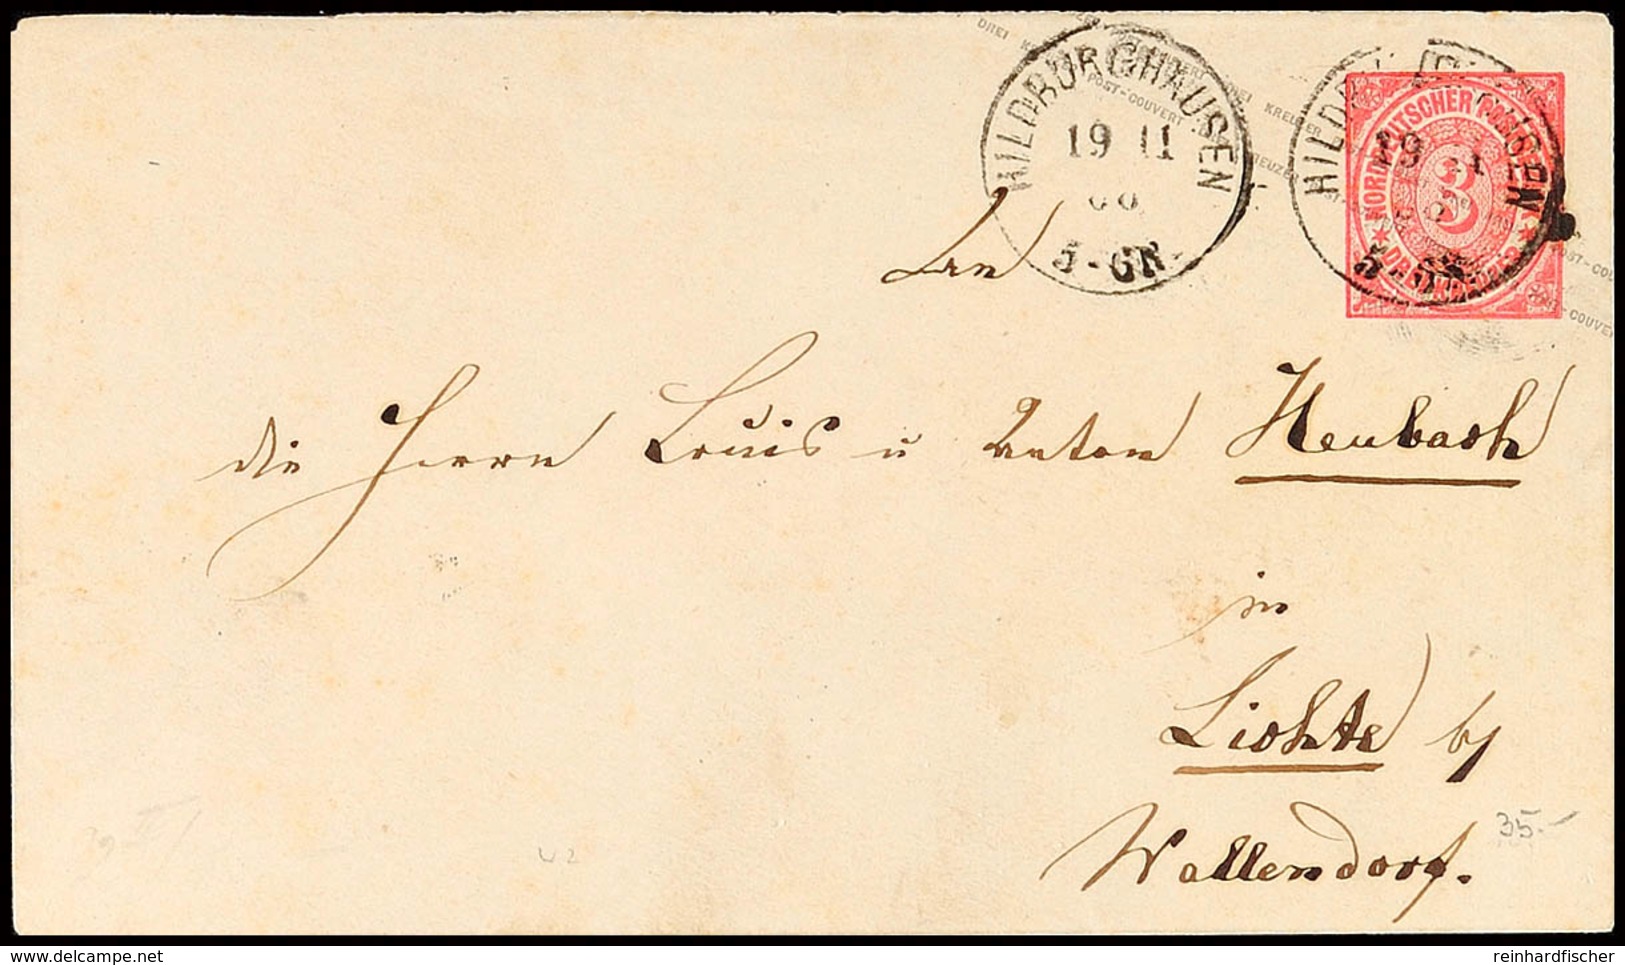 DREI KREUZER POST-COUVERT DREI KREUZER
HILDBURGHAUSEN
19 11
68
5-6N.
HILDBURGHAUSEN
19 11
NORDDEUTSCHER POSTBEZIRK
3
DREI KREUZER
An
die Herrn Louis u Anton Heubach
in
Lichte b/
Wallendorf.
35.-
u 2
delcampe.net
reinhardfischer